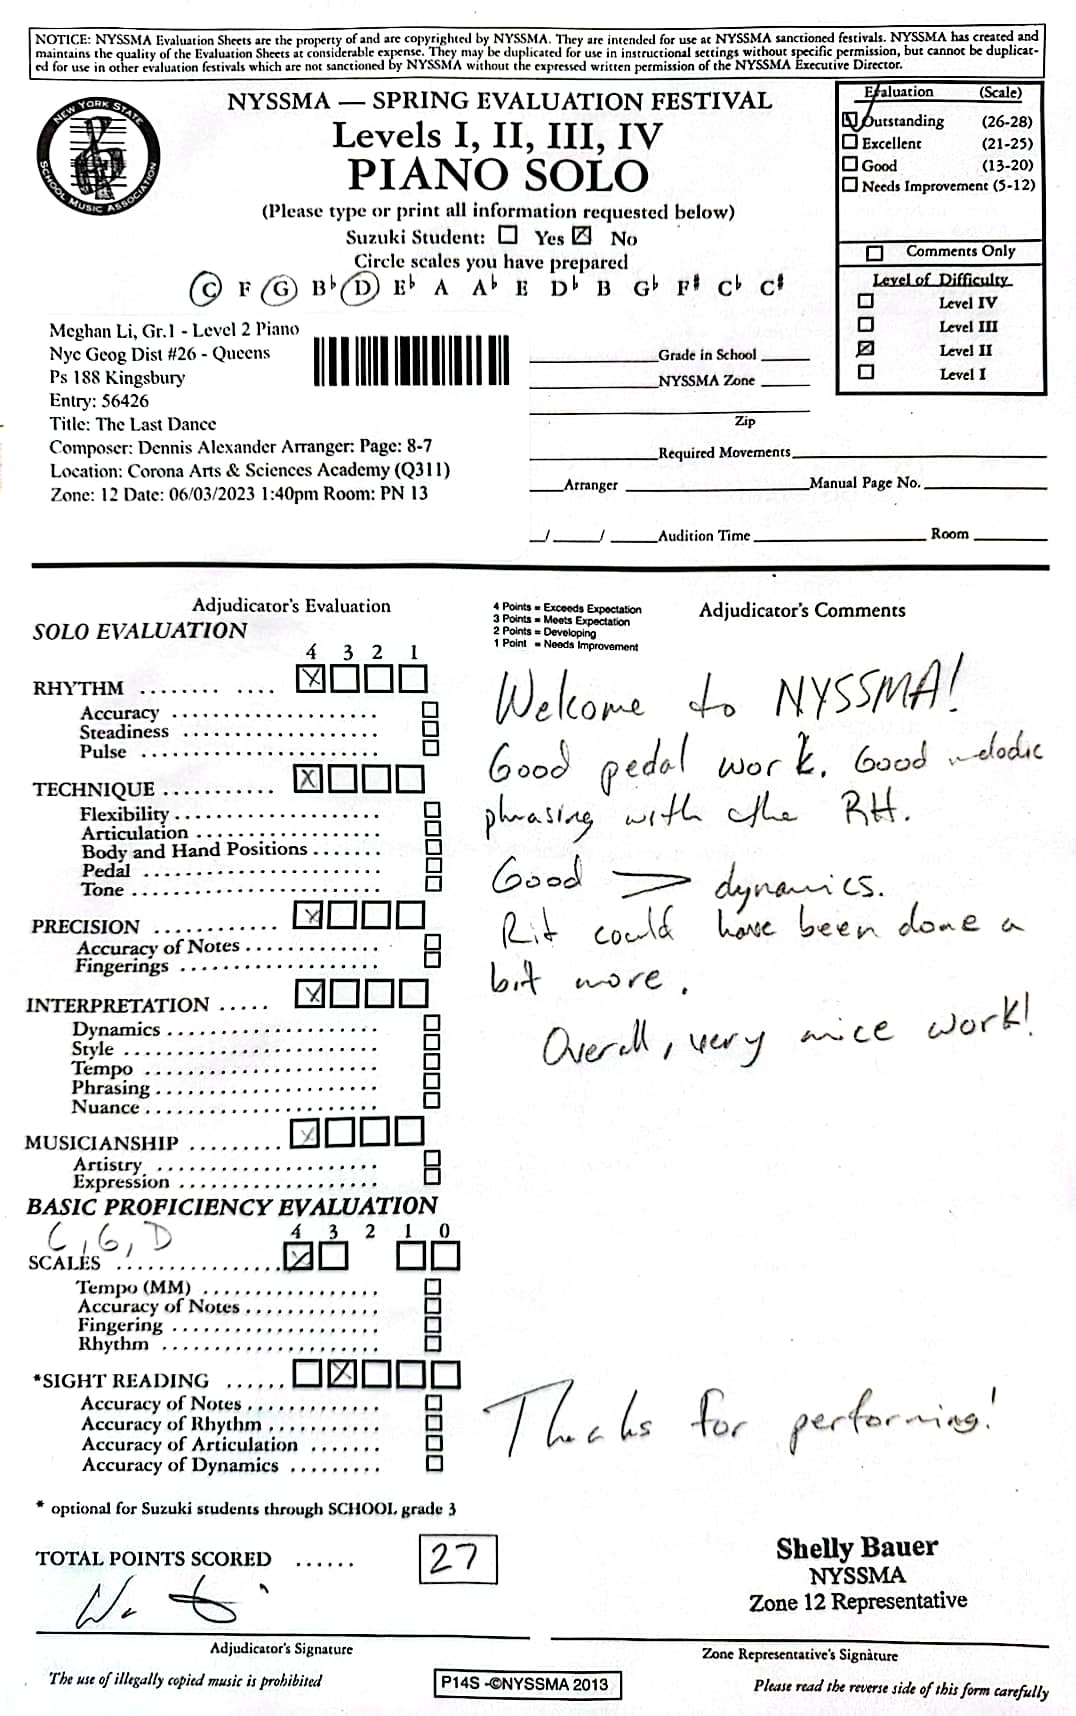 NOTICE: NYSSMA Evaluation Sheets are the property of and are copyrighted by NYSSMA. They are intended for use at NYSSMA sanctioned festivals. NYSSMA has created and
maintains the quality of the Evaluation Sheets at considerable expense. They may be duplicated for use in instructional settings without specific permission, but cannot be duplicat-
ed for use in other evaluation festivals which are not sanctioned by NYSSMA without the expressed written permission of the NYSSMA Executive Director.
NEW YORK STATE
SCHOOL MUSIC ASSOCIATION
NYSSMA — SPRING EVALUATION FESTIVAL
Levels I, II, III, IV
PIANO SOLO
(Please type or print all information requested below)
Suzuki Student: Yes No
Circle scales you have prepared
C F G B♭ D E♭ A A♭ E D♭ B G♭ F♯ C♭ C♯
Evaluation (Scale)
Outstanding (26-28)
Excellent (21-25)
Good (13-20)
Needs Improvement (5-12)
Comments Only
Level of Difficulty
Level IV
Level III
Level II
Level I
Meghan Li, Gr.1 - Level 2 Piano
Nyc Geog Dist #26 - Queens
Ps 188 Kingsbury
Entry: 56426
Title: The Last Dance
Composer: Dennis Alexander Arranger: Page: 8-7
Location: Corona Arts & Sciences Academy (Q311)
Zone: 12 Date: 06/03/2023 1:40pm Room: PN 13
Grade in School
NYSSMA Zone
Zip
Required Movements
Arranger Manual Page No.
/ / Audition Time Room
Adjudicator's Evaluation
SOLO EVALUATION
4 3 2 1
RHYTHM ........ ....
Accuracy
Steadiness
Pulse
TECHNIQUE ...........
Flexibility
Articulation
Body and Hand Positions
Pedal
Tone
PRECISION ............
Accuracy of Notes
Fingerings
INTERPRETATION .....
Dynamics
Style
Tempo
Phrasing
Nuance
MUSICIANSHIP .........
Artistry
Expression
BASIC PROFICIENCY EVALUATION
C, G, D
4 3 2 1 0
SCALES
Tempo (MM)
Accuracy of Notes
Fingering
Rhythm
*SIGHT READING ......
Accuracy of Notes
Accuracy of Rhythm
Accuracy of Articulation
Accuracy of Dynamics
* optional for Suzuki students through SCHOOL grade 3
TOTAL POINTS SCORED ...... 27
4 Points = Exceeds Expectation
3 Points = Meets Expectation
2 Points = Developing
1 Point = Needs Improvement
Adjudicator's Comments
Welcome to NYSSMA!
Good pedal work. Good melodic
phrasing with the RH.
Good > dynamics.
Rit could have been done a
bit more.
Overall, very nice work!
Thanks for performing!
Shelly Bauer
NYSSMA
Zone 12 Representative
Adjudicator's Signature
Zone Representative's Signature
The use of illegally copied music is prohibited
P14S -©NYSSMA 2013
Please read the reverse side of this form carefully